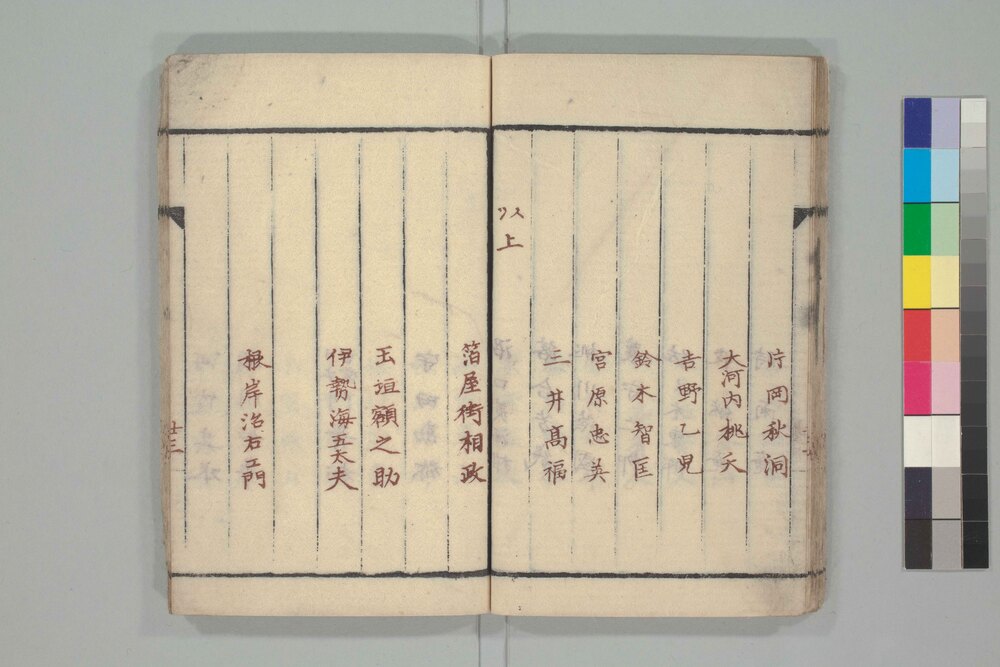 片岡秋洞
大河内桃夭
吉野乙児
鈴木智匡
宮原忠英
三井髙福
以上
箔屋街相政
玉垣額之助
伊勢海五太夫
根岸治右エ門
廿三